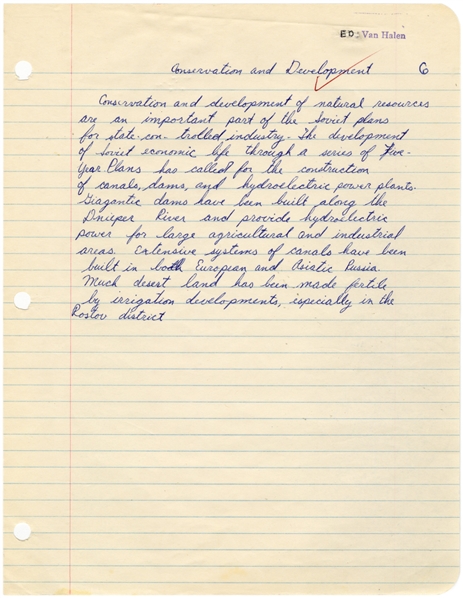 ED. Van Halen
Conservation and Development 6
Conservation and development of natural resources
are an important part of the Soviet plans
for state-con-trolled industry. The development
of Soviet economic life through a series of Five-
Year Plans has called for the construction
of canals, dams, and hydroelectric power plants.
Giagantic dams have been built along the
Dnieper River and provide hydroelectric
power for large agricultural and industrial
areas. Extensive systems of canals have been
built in both European and Asiatic Russia.
Much desert land has been made fertile
by irrigation developments, ispecially in the
Rostov district